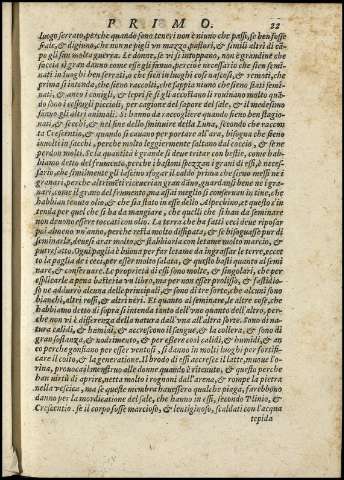 PRIMO. 22
luogo serrato, perche quando sono teneri non è niuno che passi, se ben fosse
frate, & digiuno, che non ne pigli un mazzo, pastori, & simili altri di ca-
po gli fan molta guerra. Le donne, se vi s'intoppano, non è grandine che
faccia sì gran danno come esse gli fanno, perciò è necessario che sien semi-
nati in luoghi ben serrati, o che sien in luoghi cosi nascosi, & remoti, che
prima s'intenda, che sieno raccolti, che sappia niuno che sieno stati semi-
nati, anco i conigli, & lepri se gli accostano li ruinano molto quan-
do sono i cespugli piccioli, per cagione del sapore del sale, & il medesimo
fanno gli altri animali. si hanno da raccogliere quando sieno ben stagio-
nati, & secchi, & nel fine dello sminuire della Luna, secondo che raccon-
ta Crescentio, & quando si cauano per portare all'ara, bisogna che sieno
inuolti in sacchi, perche molto leggiermente saltano dal coccio, & se ne
perdon molti. Se la quantità è grande si deue tritare con bestie, come hab-
biamo detto del frumento, perche i bastoni spezzan i grani di essi, è neces-
sario, che similmente gli lascino sfogar il caldo prima che sieno messi ne i
granari, perche altrimēti riceuerian gran dāno, guardansi bene ne i gra-
nari, come il grano del frumento, ma assai meglio si conseruan in tine, che
habbian tenuto olio, & che sia stato in esse dello Alpechino, et questo s'in
tenda per quel che si ha da mangiare, che quelli che si han da seminare
non deuono essere toccati con olio. La terra che ha fatti ceci deue riposar
poi almeno vn'anno, perche resta molto dissipata, & se bisognasse pur di
seminarla, deuesi arar molto, & stabbiarla con letame molto marcio, &
putrefatto. Ogni paglia è buona per far letame da ingrassar le terre, eccet
to la paglia de i ceci, per esser molto salata, & questo basti quanto al semi
nare, & conseruare. Le proprietà di essi sono molte, & singolari, che per
esplicarle apena bastaria vn libro, ma per non esser prolisso, & fastidio-
so ne addurrò alcuna delle principali, & sono di tre sorte, che alcuni sono
bianchi, altri rossi, & altri neri. Et quanto al seminare, le altre cose, che
habbiamo detto di sopra, s'intenda tanto dell'vno quanto dell'altro, per-
che non vi è differenza della natura dall'vna all'altra sorte. Sono di na-
tura calidi, & humidi, & accrescono il sangue, & la collera, & sono di
gran sostanza, & nodrimento, & per essere cosi calidi, & humidi, & an
co perche gonfiano per esser ventosi, si danno in molti luoghi per fortifi-
care il coito, & la generatione. Il brodo di essi accresce il latte, muoue l'o-
rina, prouoca il menstruo alle donne quando è ritenuto, & questo perche
han virtù di aprire, netta i rognoni dall'arena, & rompe la pietra
nella vescica, ma se queste membra hauessero qualche piaga, farebbono
danno per la mordicatione del sale, che hanno in essi, secondo Plinio, &
Crescentio. se il corpo fusse marcioso, & lentiginoso, scaldati con l'acqua
tepida